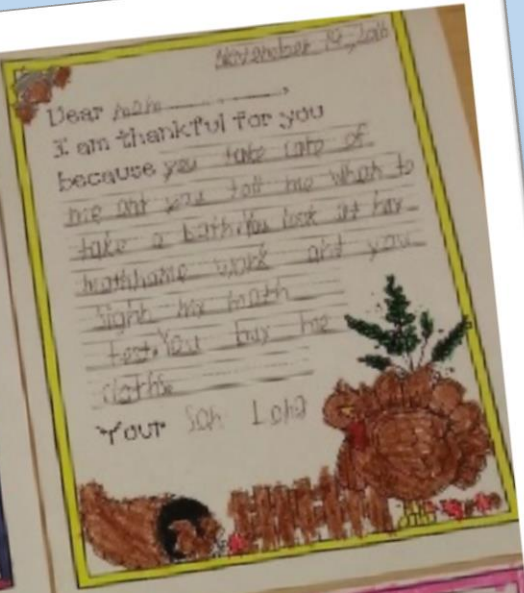 November 19, 2016
Dear mom,
I am thankful for you
because you take care of
me and you tell me when to
take a bath. You look at my
math home work and you
sighn my math
test. You buy me
cloths.
Your Son